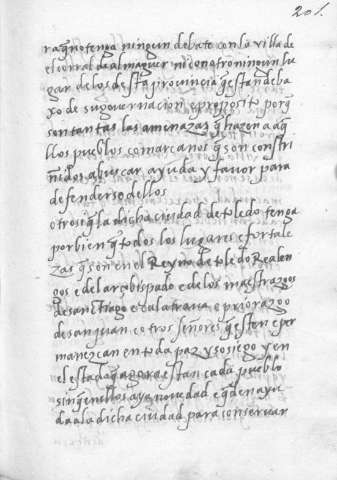 201.
ra q̃ no tenga ningun debate con la villa de
el corral de almaguer ni con otro ningun lu
gar de los desta provincia q̃ estan deba
xo de su governacion e proposito porq̃
son tantas las amenazas q̃ hazen a aq̃
llos pueblos comarcanos q̃ son constri
ñidos a buscar ayuda y favor para
defenderse dellos
otrosi q̃ la dicha ciudad de toledo tenga
por bien q̃ todos los lugares e fortale
zas q̃ son en el Reyno de toledo Realen
gos e del arçobispado e de los maestrazgos
de santiago e calatrava e priorazgo
de san juan e otros señores q̃ esten e per
manezcan en toda paz y sosiego y en
el estado q̃ agora estan cada pueblo
sin q̃ en ellos aya novedad e q̃ den ayu
da a la dicha ciudad para conservar